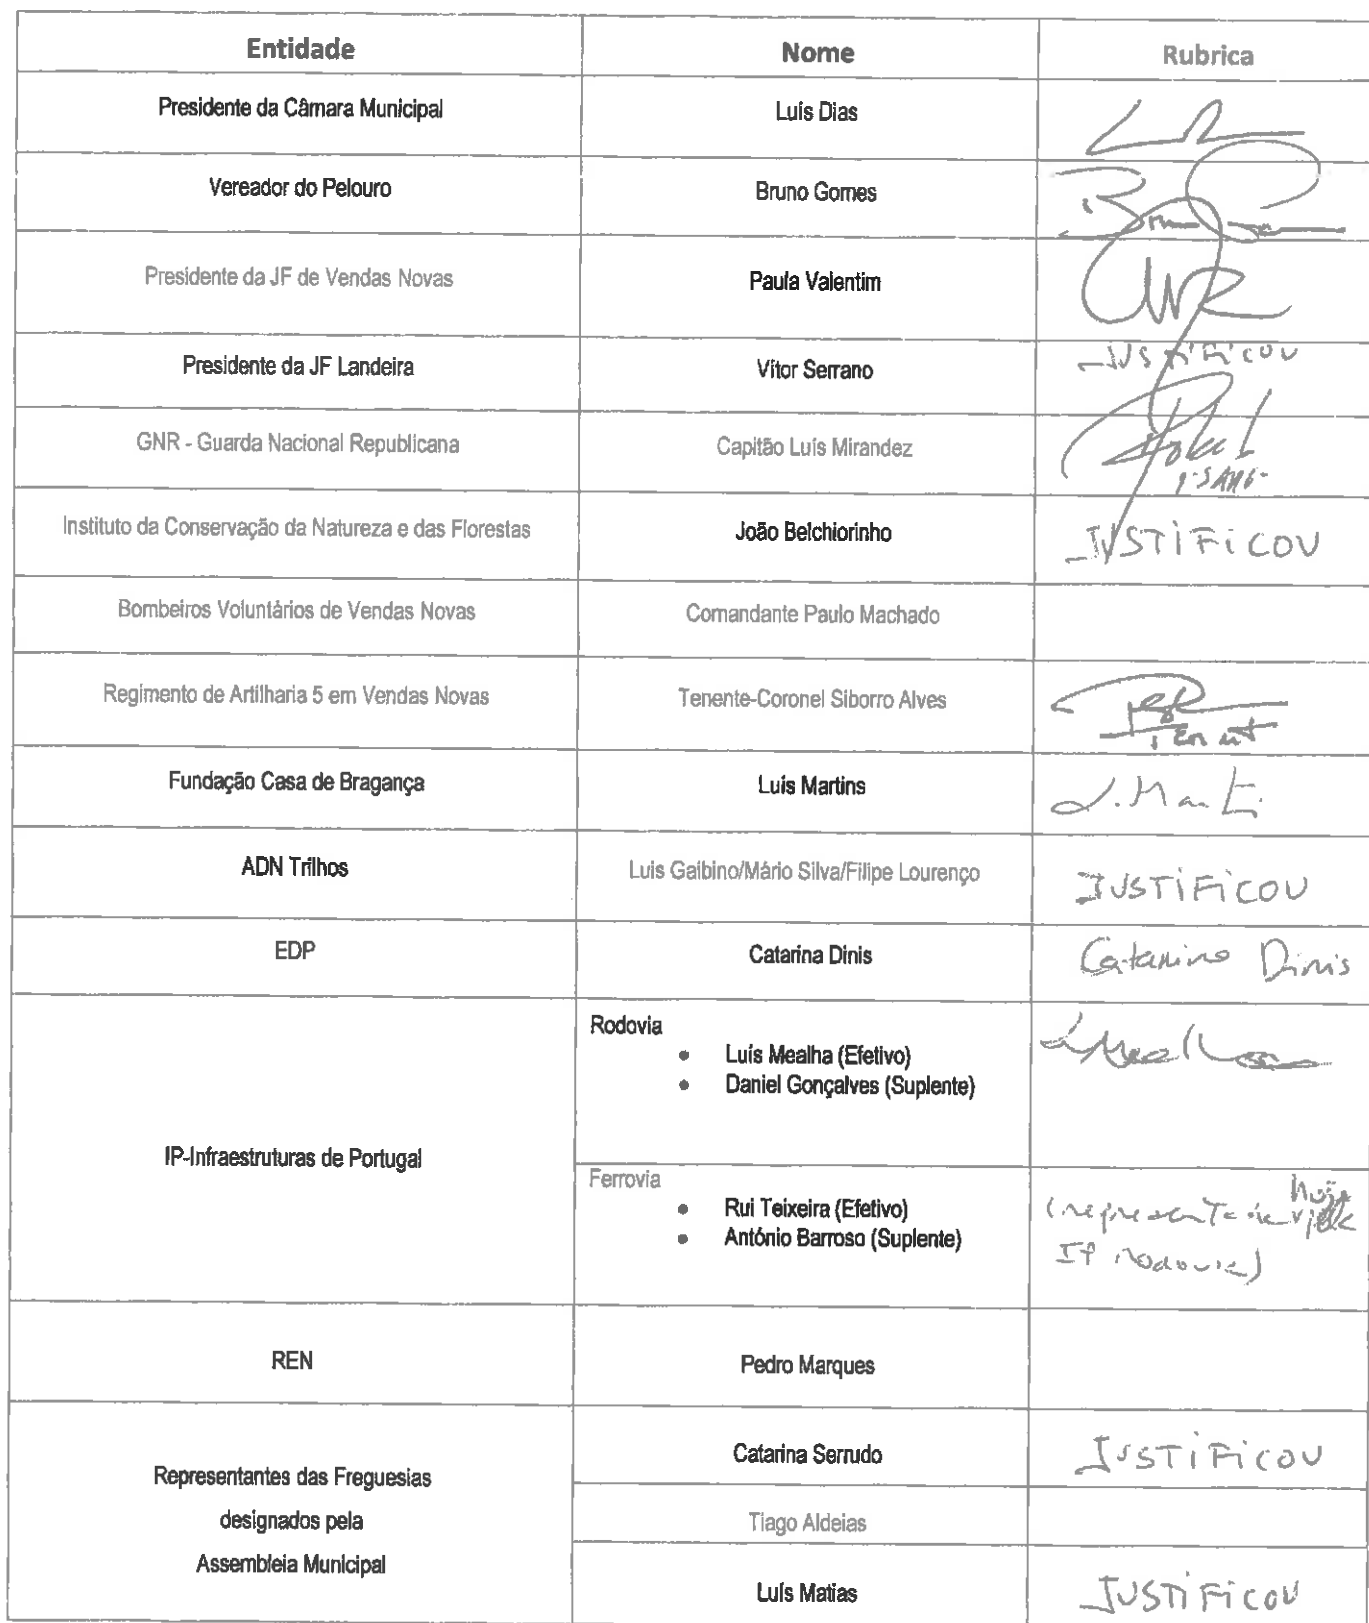 Entidade Nome Rubrica
Presidente da Câmara Municipal Luís Dias
Vereador do Pelouro Bruno Gomes
Presidente da JF de Vendas Novas Paula Valentim
Presidente da JF Landeira Vítor Serrano JUSTiFiCOU
GNR - Guarda Nacional Republicana Capitão Luís Mirandez
Instituto da Conservação da Natureza e das Florestas João Belchiorinho JUSTiFiCOU
Bombeiros Voluntários de Vendas Novas Comandante Paulo Machado
Regimento de Artilharia 5 em Vendas Novas Tenente-Coronel Siborro Alves
Fundação Casa de Bragança Luís Martins
ADN Trilhos Luis Galbino/Mário Silva/Filipe Lourenço JUSTiFiCOU
EDP Catarina Dinis Catarina Dinis
IP-Infraestruturas de Portugal
Rodovia
• Luís Mealha (Efetivo)
• Daniel Gonçalves (Suplente)
Ferrovia
• Rui Teixeira (Efetivo)
• António Barroso (Suplente)
IP rodovia)
REN Pedro Marques
Representantes das Freguesias
designados pela
Assembleia Municipal
Catarina Serrudo JUSTiFiCOU
Tiago Aldeias
Luís Matias JUSTiFiCOU